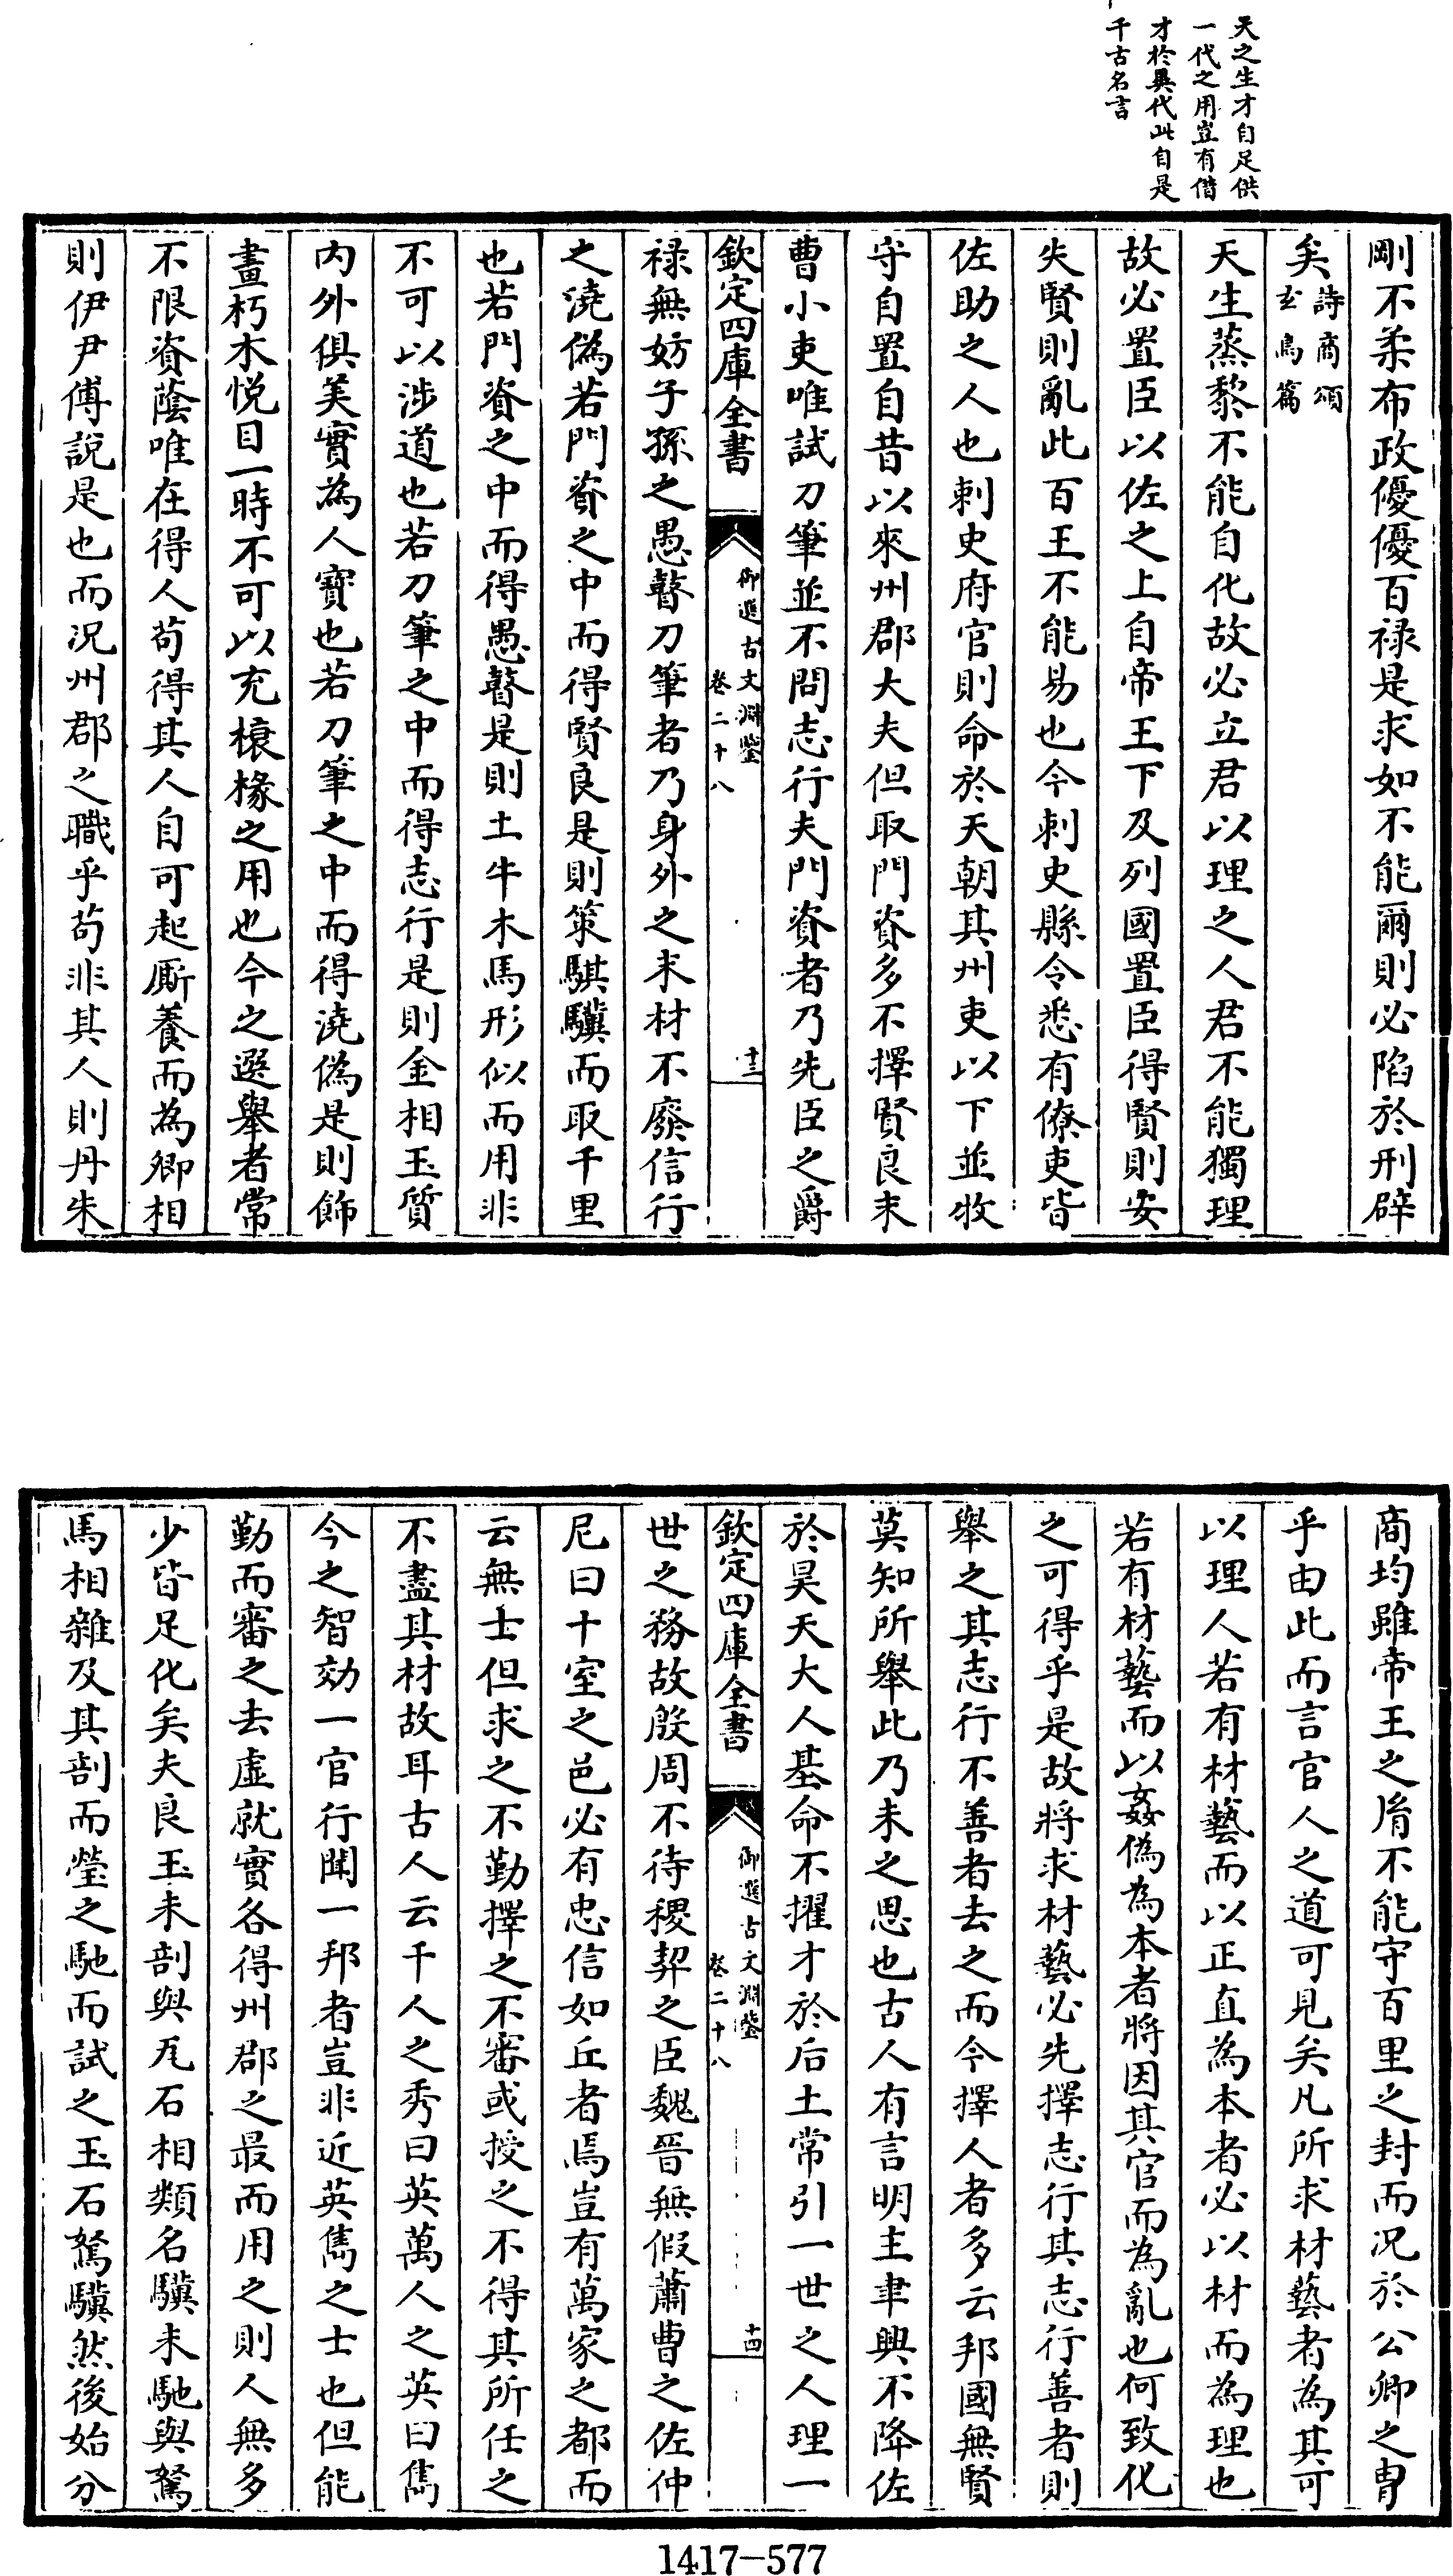 天之生才自足供
一代之用豈有借
才於異代此自是
千古名言
剛不柔布政優優百禄是求如不能爾則必陷於刑辟
矣詩商頌
玄鳥篇
天生蒸黎不能自化故必立君以理之人君不能獨理
故必置臣以佐之上自帝王下及列國置臣得賢則安
失賢則亂此百王不能易也今刺史縣令悉有僚吏皆
佐助之人也刺史府官則命於天朝其州吏以下並牧
守自置自昔以來州郡大夫但取門資多不擇賢良末
曹小吏唯試刀筆並不問志行夫門資者乃先臣之爵
欽定四庫全書
御選古文淵鑒
卷二十八
十三
禄無妨子孫之愚瞽刀筆者乃身外之末材不廢信行
之澆偽若門資之中而得賢良是則策騏驥而取千里
也若門資之中而得愚瞽是則土牛木馬形似而用非
不可以涉道也若刀筆之中而得志行是則金相玉質
内外俱美實為人寶也若刀筆之中而得澆偽是則飾
畫朽木悦目一時不可以充榱椽之用也今之選舉者當
不限資蔭唯在得人苟得其人自可起厮養而為卿相
則伊尹傅說是也而况州郡之職乎苟非其人則丹朱
商均雖帝王之胤不能守百里之封而况於公卿之胄
乎由此而言官人之道可見矣凡所求材藝者為其可
以理人若有材藝而以正直為本者必以材而為理也
若有材藝而以姦偽為本者將因其官而為亂也何致化
之可得乎是故將求材藝必先擇志行其志行善者則
舉之其志行不善者去之而今擇人者多云邦國無賢
莫知所舉此乃未之思也古人有言明主聿興不降佐
於昊天大人基命不擢才於后土常引一世之人理一
欽定四庫全書
御選古文淵鑒
卷二十八
十四
世之務故殷周不待稷契之臣魏晉無假蕭曹之佐仲
尼曰十室之邑必有忠信如丘者焉豈有萬家之都而
云無士但求之不勤擇之不審或授之不得其所任之
不盡其材故耳古人云千人之秀曰英萬人之英曰雋
今之智効一官行聞一邦者豈非近英雋之士也但能
勤而審之去虛就實各得州郡之最而用之則人無多
少皆足化矣夫良玉未剖與瓦石相類名驥未馳與駑
馬相雜及其剖而瑩之馳而試之玉石駑驥然後始分
1417-577